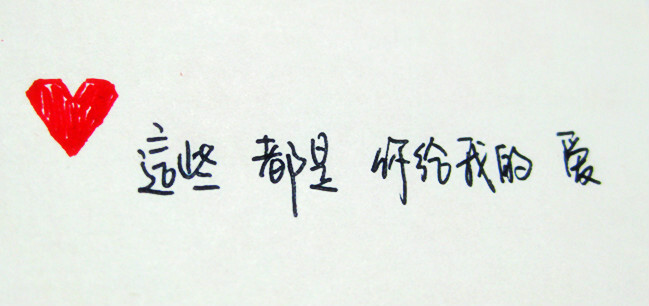 這些 都是 你给我的 爱